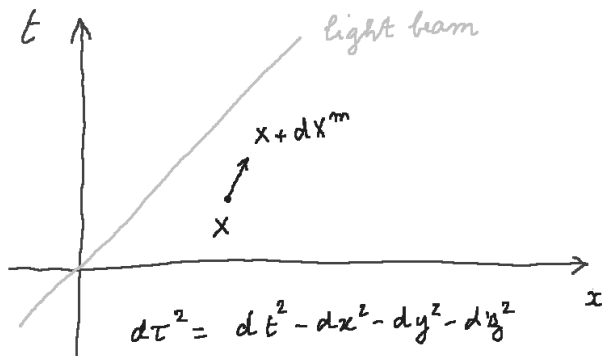 t
light beam
X + dX^m
X
x
dτ² = dt² - dx² - dy² - dz²